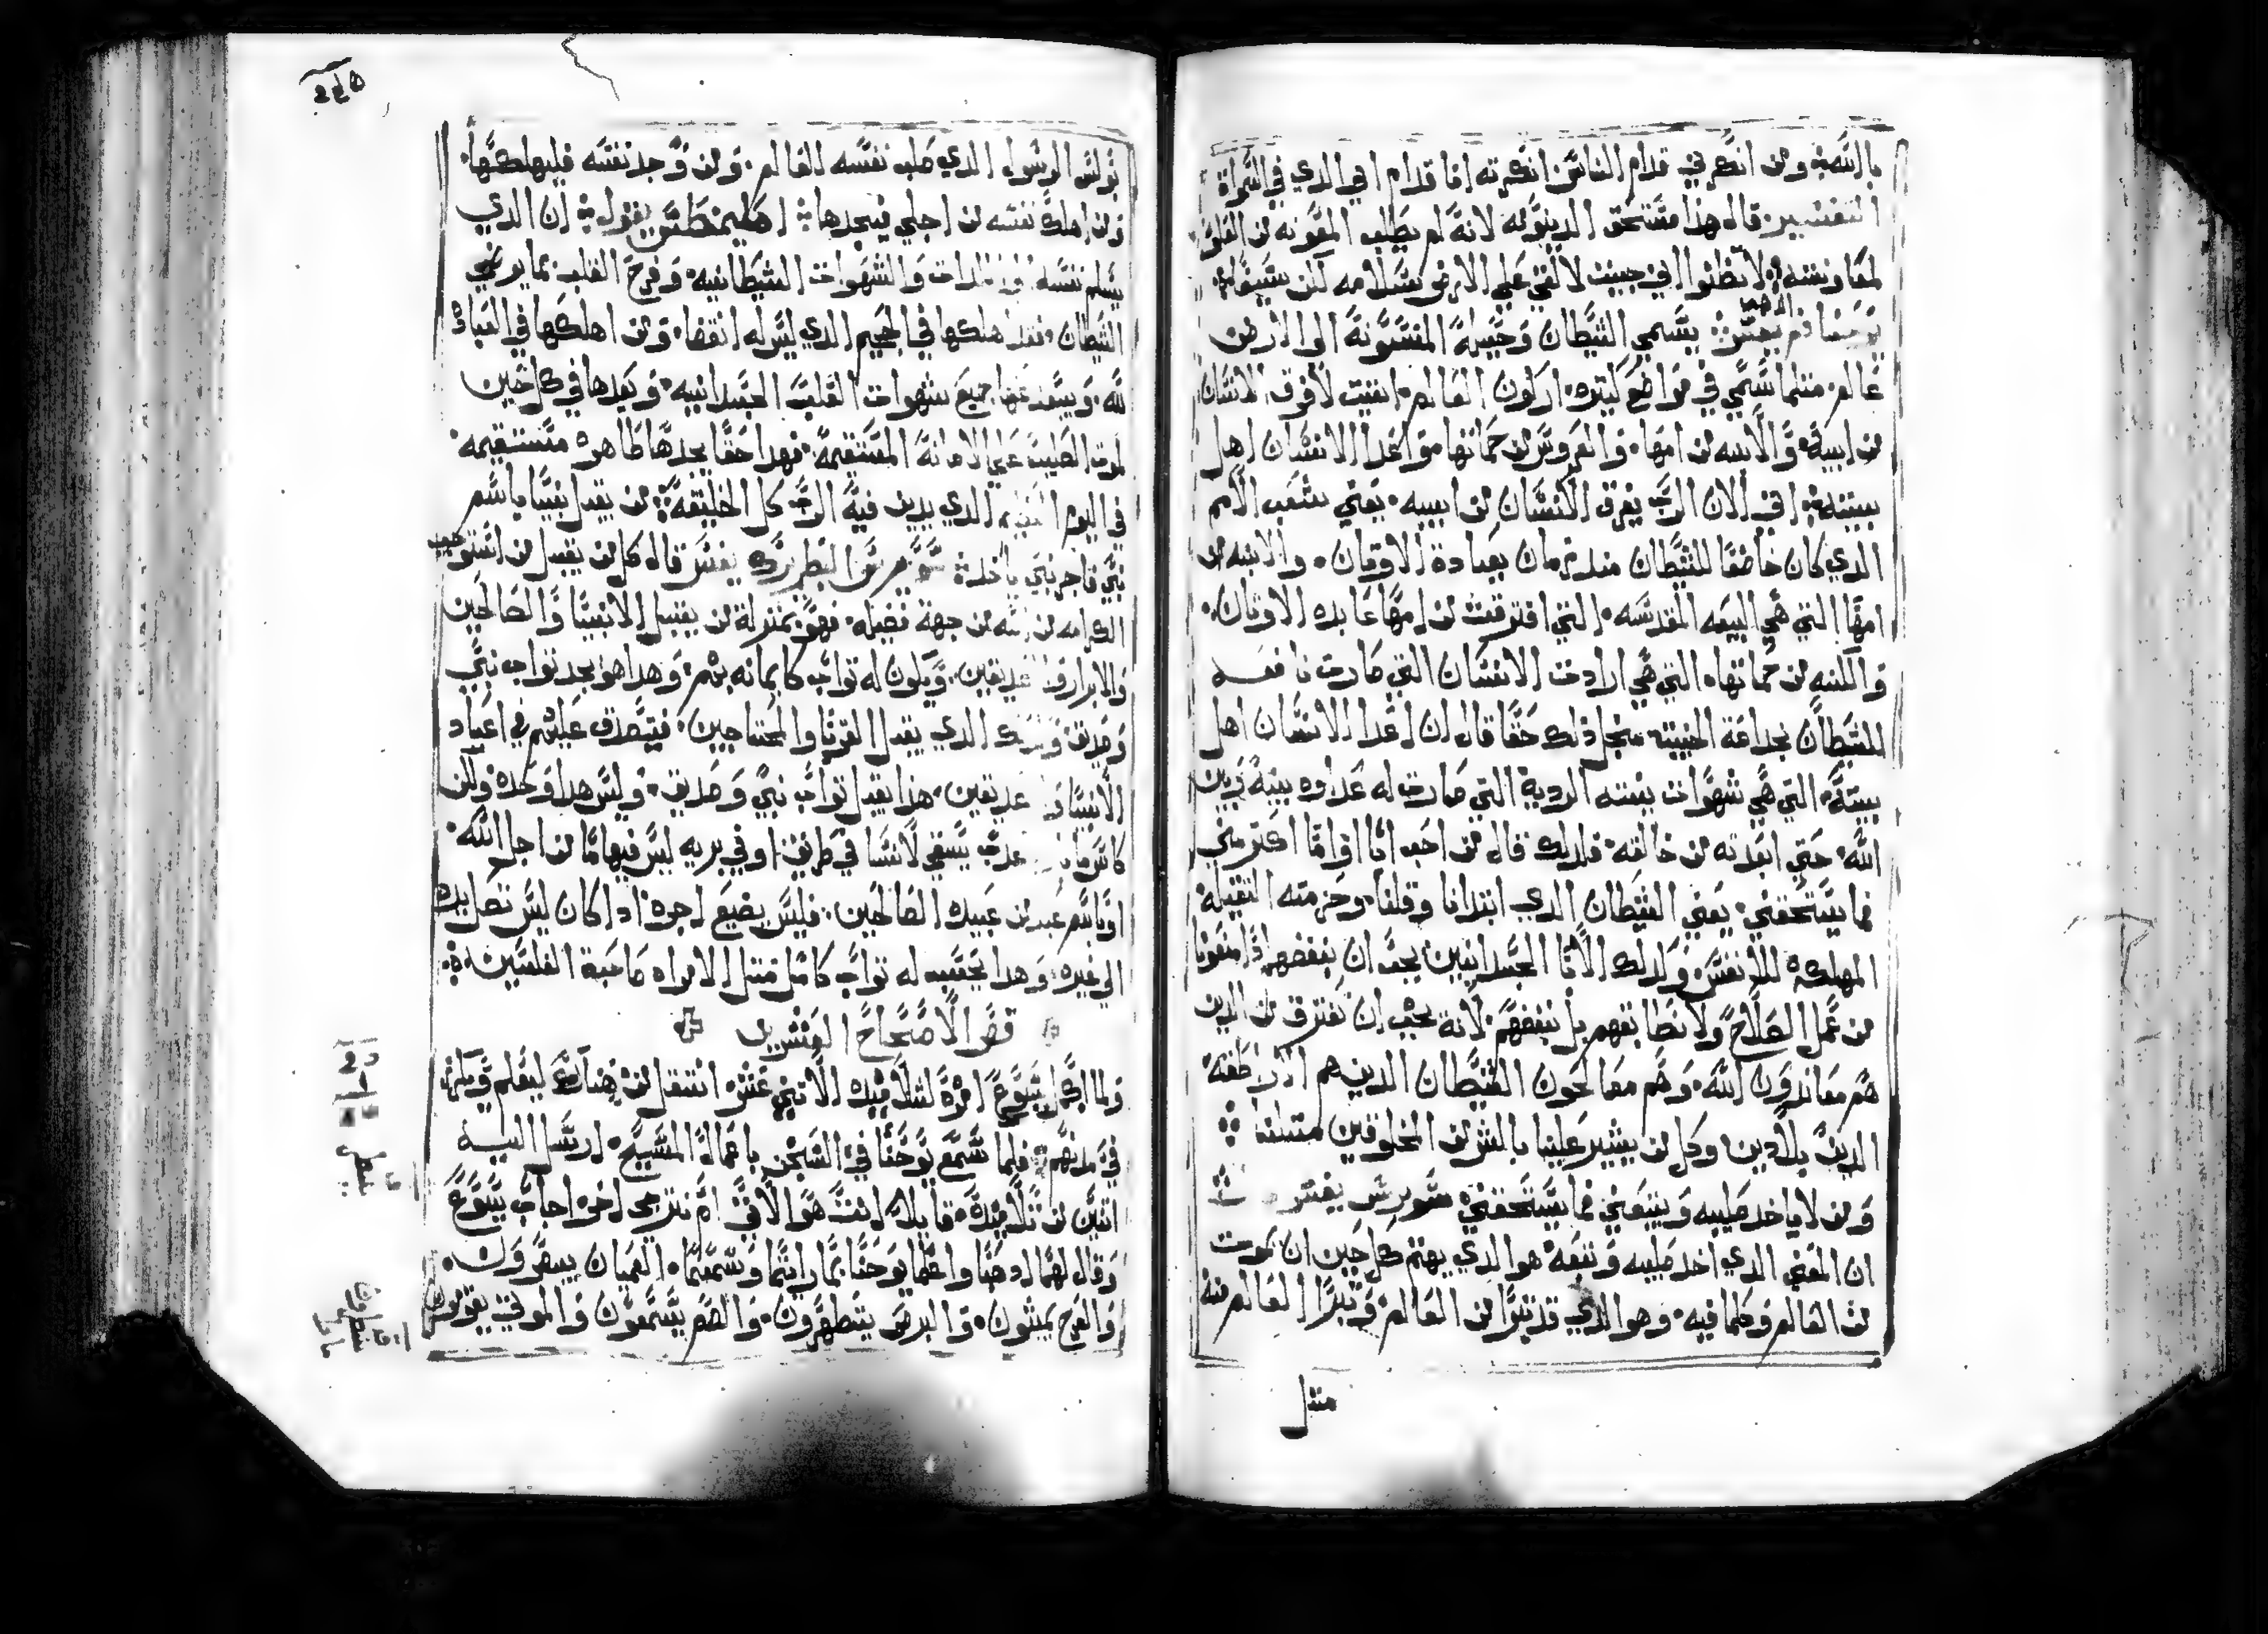 بالله ومن انكرني قدام الناس انكرته انا قدام ابي الدي في السماة
التفسير قال هذا مستحق الدينونه لانه لم يطلب المعونه من
لا تظنوا اني جييت لالقي علي الارض سلامه لكن سيفا
يسمي الشيطان وحيله الي الارض
عالم مثلما سمي في مواضع كتيره اركون العالم اتيت لافرق الانسان
من ابيه والابنه من امها والعروس من حماتها واعدا الانسان اهل
بيته افي الان الرب يفرق الانسان من ابيه يعني شعب الامم
الدي كان خاضعا للشيطان مند زمان بعبادة الاوتان والابنه من
امها التي هي البيعه المقدسه التي افترقت من امها عابده الاوتان
والكنه من حماتها التي هي ارادت الانسان التي صارت نافعه
للشيطان بخداعة الخبيته منجل ذلك حقا قال ان اعدا الانسان اهل
بيته التي هي شهوات بيته الردية التي صارت له عداوه بينه وبين
الله حتي ابعدته من خالقه فلدلك قال من احب ابا او اما اكتر مني
فما يستحقني يعني الشيطان الدي وحزمته التقيله
المهلكه للانفس ولدلك الابا الجسدانيين يجب ان نبغضهم اذا منعونا
من عمل الصلاح ولا نطابقهم بل نبغضهم لانه يجب ان نفترق من الدين
هم معاندون الله وهم مصالحون الشيطان الدين هم الاراطقه
الدين بلا دين وكل من يشير علينا بالشر من المخلوقين متلنا
ومن لا ياخد صليبه ويتبعني فما يستحقني سويرس يفسر
ان المعني الدي اخد صليبه وتبعه هو الدي يهتم كل حين ان يموت
من العالم وكلما فيه وهو الدي قد تبرا من العالم وتبرا العالم منه
مثل
بولس الرسول الدي صلب نفسه للعالم ومن وجد نفسه فليهلكها
ومن اهلك نفسه من اجلي يجدها يقول ان الدي
يسلم نفسه والشهوات الشيطانيه وفرح القلب بما يرضي
الشيطان فقد اهلكها في الجحيم الدي ليس له انقضا ومن اهلكها في العباده
لله ويبعد عنها جميع شهوات القلب الجسدانيه ويعدها في كل حين
لموت الصليب علي الامانه المستقيمه فهدا حقا يجدها طاهره مستقيمه
في اليوم الدي يدين فيه الرب كل الخليقه من يقبل نبيا باسم
نبي فاجر نبي ياخد البطريرك يفسر قال كل من يقبل من استوجب
الكرامه من الله من جهة فضيله فهو بمنزلة من يقبل الانبيا والصالحين
والابرار ويكون له تواب كايمانه بهم وهدا هو يجد تواب نبي
وصديق الدي يقبل الغربا والمحتاجين فيتصدق عليهم في اعياد
الانبيا هدا يقبل تواب نبي وصديق وليس هدا وحده ولكن
كاس ما يسقي لانسا في طريق او في بريه ليس فيها ما من اجل الله
او باسم عبد من عبيده الصالحين فليس يضيع اجره ادا كان ليس تصل يده
الي غيره وهدا يحتسب له تواب كامل متل الامراه صاحبة الفلسين
قص الاصحاح العشرين
ولما اكمل يسوع امره لتلاميده الاتني عشر انتقل من هناك ليعلم ويكرز
في مدنهم فلما سمع يوحنا في السجن باعمال المسيح ارسل اليه
اتنين من تلاميده قايلا انت هو الاتي ام نترجى اخر اجاب يسوع
وقال لهما ادهبا واعلما يوحنا بما رايتما وسمعتما العميان يبصرون
والعرج يمشون والبرص يتطهرون والصم يسمعون والموتي يقومون